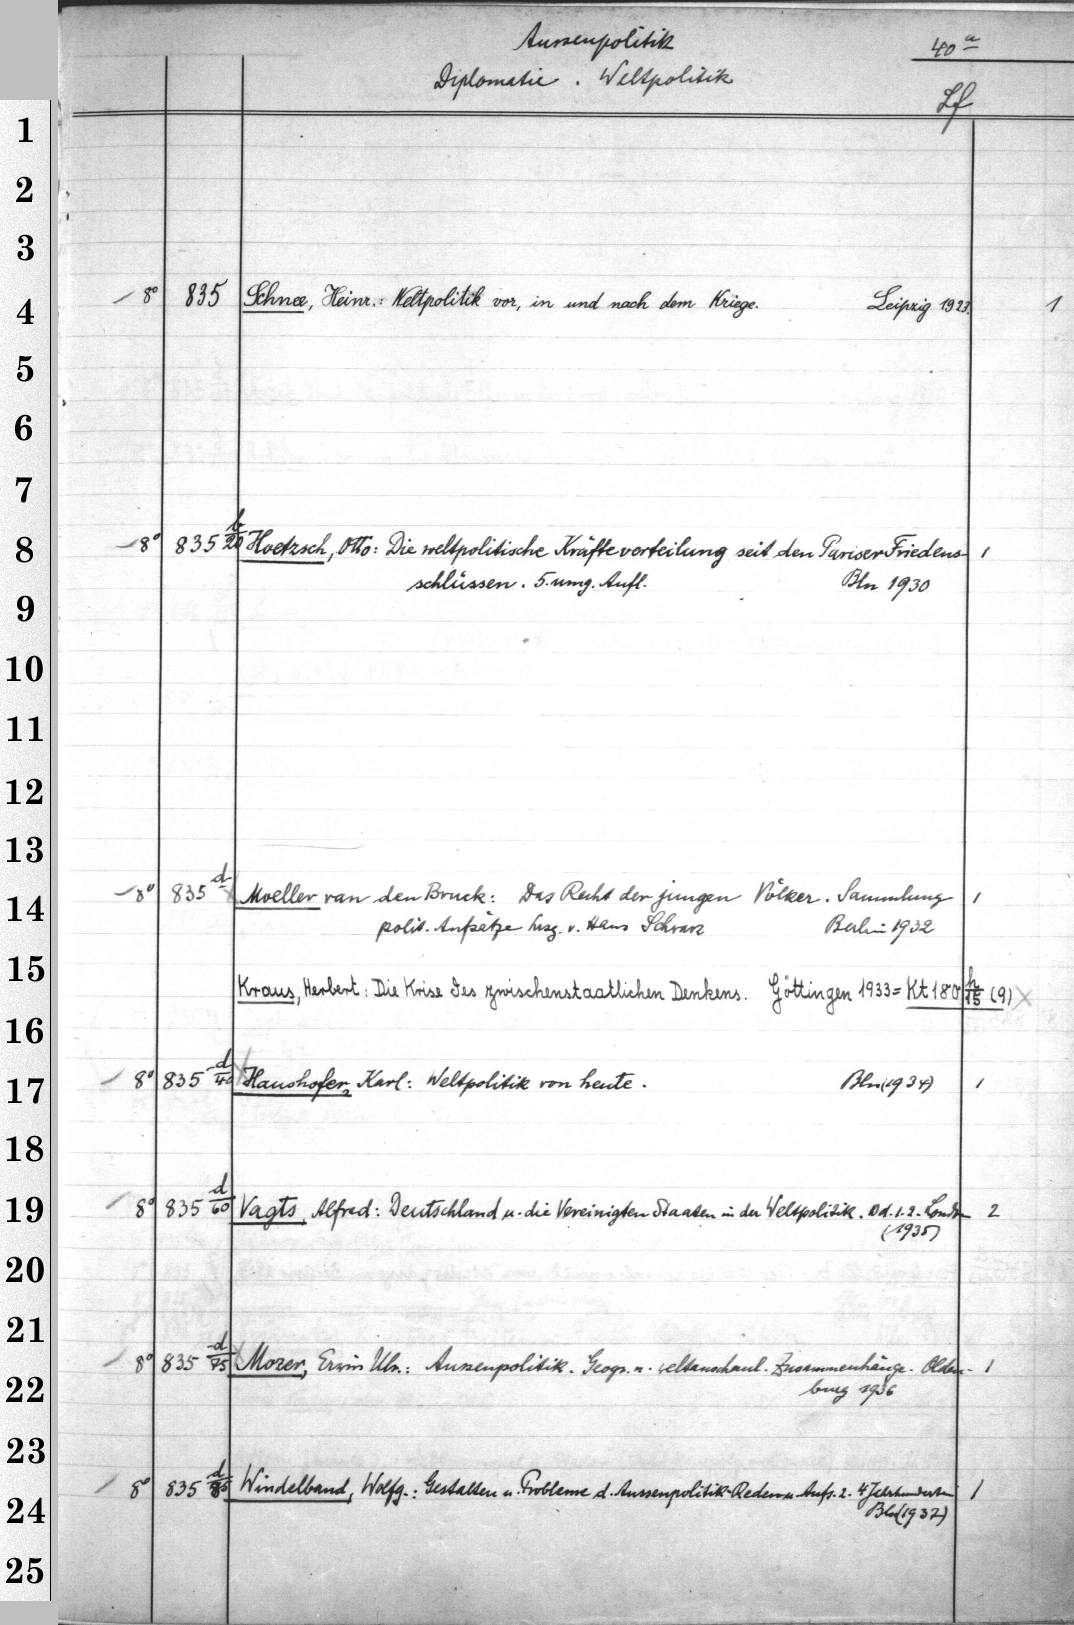 Aussenpolitik 40 a
Diplomatie. Weltpolitik
Lf
1
2
3
4 8° 835 Schnee, Heinr.: Weltpolitik vor, in und nach dem Kriege. Leipzig 1923. 1
5
6
7
8 8° 835 b/20 Hoetzsch, Otto: Die weltpolitische Kräfteverteilung seit den Pariser Friedens- 1
schlüssen. 5. umg. Aufl. Bln 1930
9
10
11
12
13
14 8° 835 d Moeller van den Bruck: Das Recht der jungen Völker. Sammlung 1
polit. Aufsätze hrsg. v. Hans Schwarz Berlin 1932
15 Kraus, Herbert: Die Krise des zwischenstaatlichen Denkens. Göttingen 1933 = Kt 180 h/15 (9)
16
17 8° 835 d/40 Haushofer, Karl: Weltpolitik von heute. Bln (1934) 1
18
19 8° 835 d/60 Vagts, Alfred: Deutschland u. die Vereinigten Staaten in der Weltpolitik. Bd. 1.2. London 2
(1935)
20
21
22 8° 835 d/75 Morer, Erwin Ulr.: Aussenpolitik. Geogr. u. weltanschaul. Zusammenhänge. Olden- 1
burg 1936
23
24 8° 835 d/85 Windelband, Wolfg.: Gestalten u. Probleme d. Aussenpolitik. Reden u. Aufs. z. 4 Jahrhunderten 1
Bln (1937)
25